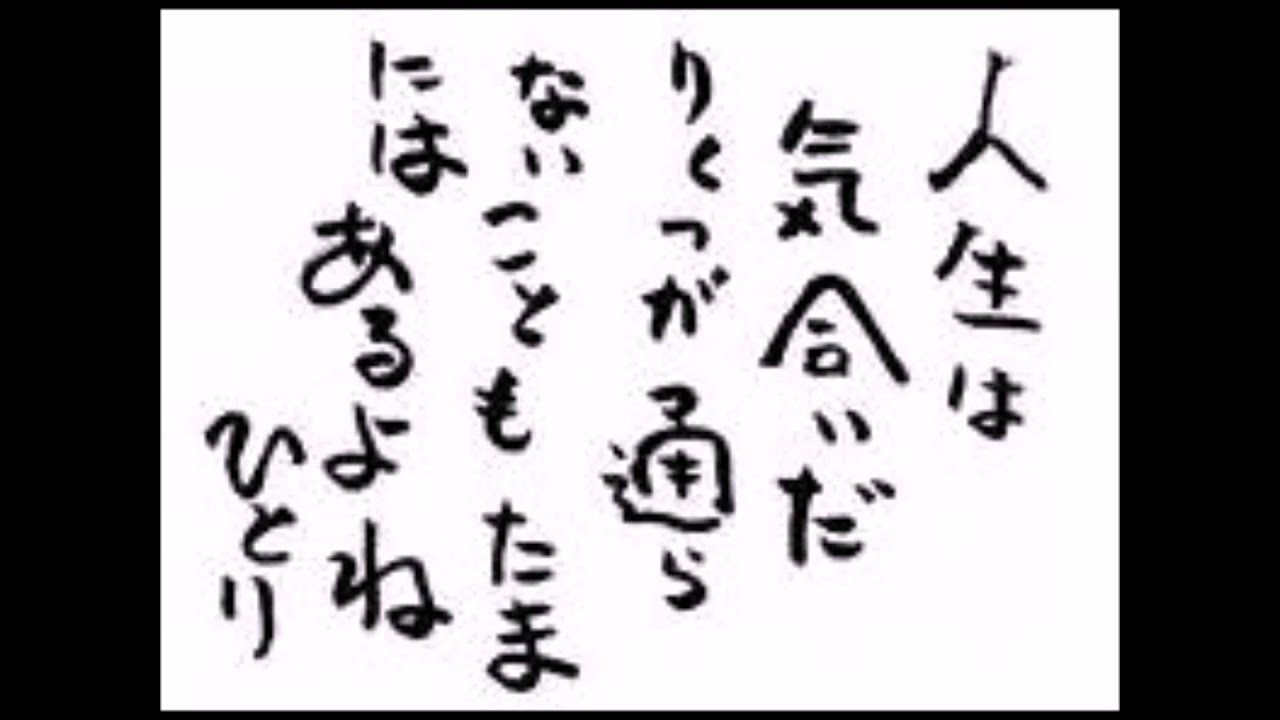 人生は
気合いだ
りくつが通ら
ないこともたま
にはあるよね
ひとり